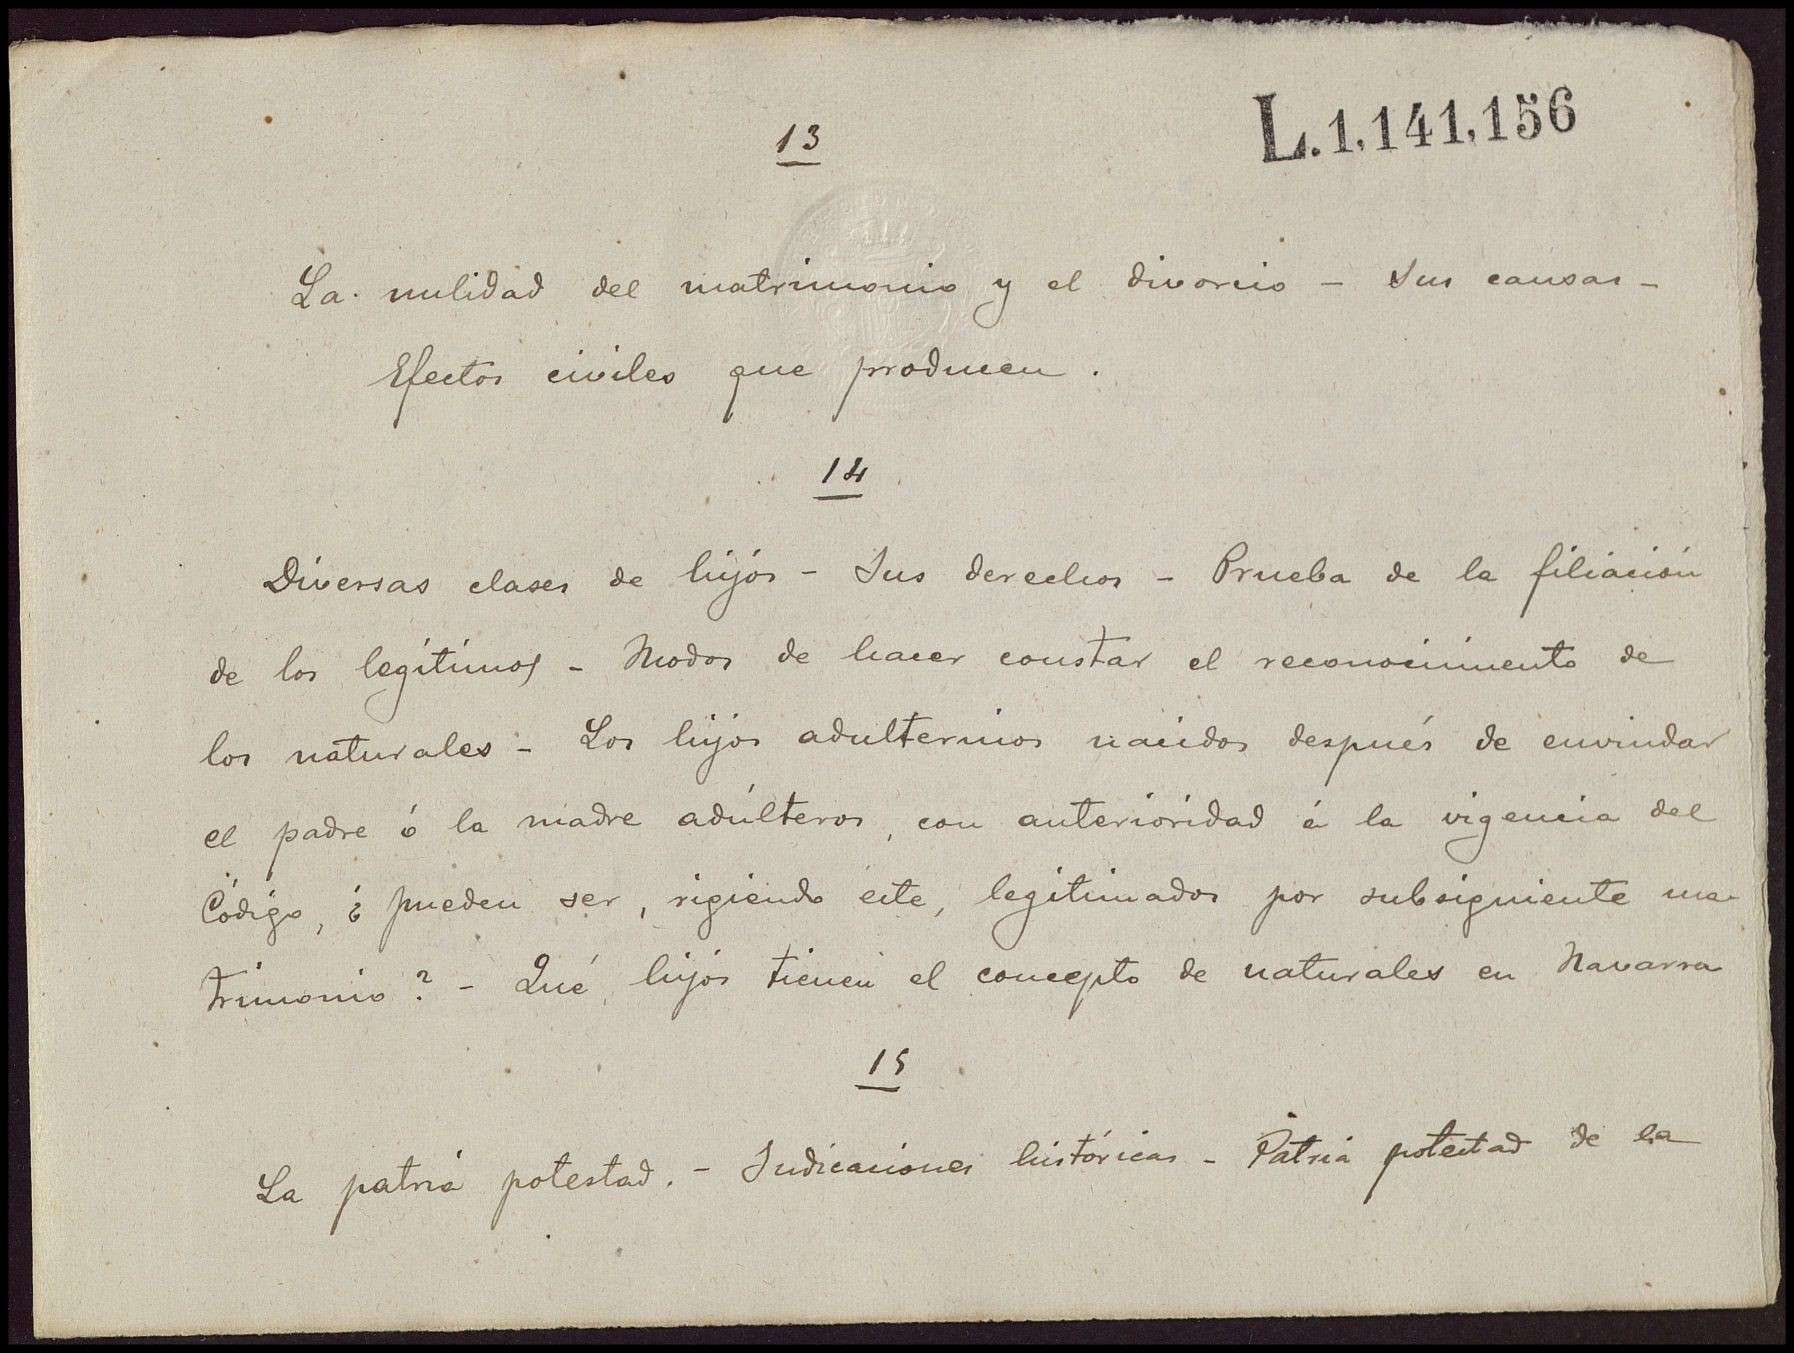 L. 1,141,156
13
La nulidad del matrimonio y el divorcio - Sus causas -
Efectos civiles que producen.
14
Diversas clases de hijos - Sus derechos - Prueba de la filiación
de los legítimos - Modos de hacer constar el reconocimiento de
los naturales - Los hijos adulterinos nacidos después de enviudar
el padre ó la madre adúlteros, con anterioridad á la vigencia del
Código, ¿ pueden ser, rigiendo éste, legitimados por subsiguiente ma-
trimonio? - Qué hijos tienen el concepto de naturales en Navarra
15
La patria potestad. - Indicaciones históricas - Patria potestad de la